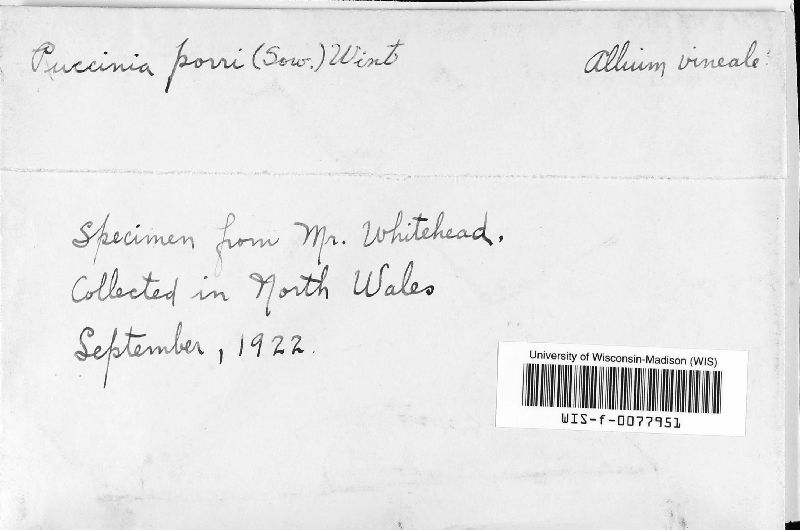 Puccinia porri (Sow.) Wint
Allium vineale
Specimen from Mr. Whitehead.
Collected in North Wales
September, 1922.
University of Wisconsin-Madison (WIS)
WIS-f-0077951